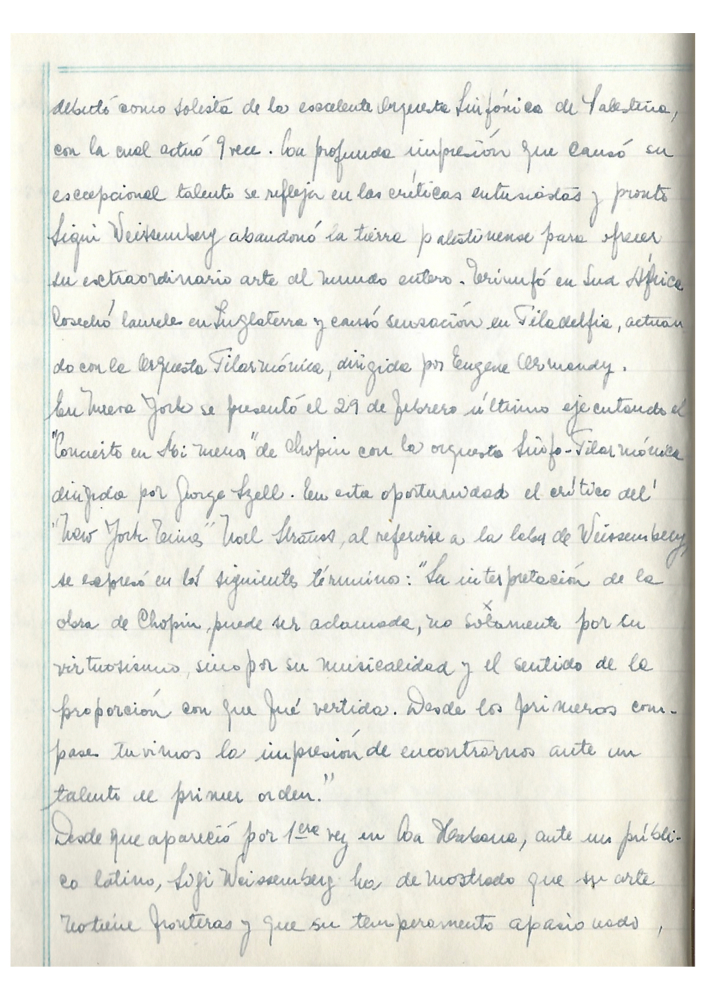 debutó como solista de la excelente Orquesta Sinfónica de Palestina,
con la cual actuó 9 vece. La profunda impresión que causó su
escepcional talento se reflejar en las críticas entusiastas y pronto
Sigui Weissemberg abandonó la tierra palestinense para ofrecer
su extraordinario arte al mundo entero. Triunfó en Sud África
Cosechó laureles en Inglaterra y causó sensación en Filadelfia, actuan
do con la Orquesta Filarmónica, dirigida por Eugene Ormandy.
En Nueva York se presentó el 29 de febrero último ejecutando el
"Concierto en Mi menor" de Chopin con la orquesta Sinfo-Filarmónica
dirigida por George Szell. En esta oportunidad el crítico del
"New York Times" Noel Strauss, al referirse a la labor de Weissemberg,
se expresó en los siguientes término: "La interpretación de la
obra de Chopin, puede ser aclamada, no solamente por su
virtuosismo, sino por su musicalidad y el sentido de la
proporción con que fué vertida. Desde los primeros com-
pases tuvimos la impresión de encontrarnos ante un
talento de primer orden."
Desde que apareció por 1era vez en La Habana, ante un públi-
co latino, Sigi Weissemberg ha demostrado que su arte
no tiene fronteras y que su temperamento apasionado,